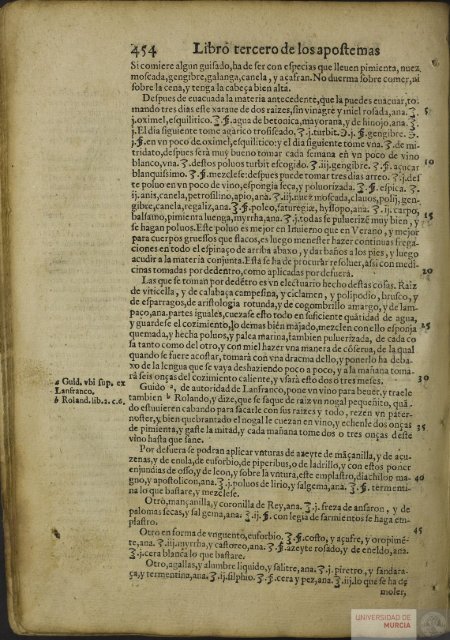 454 Libro tercero de los apostemas
Si comiere algun guisado, ha de ser con especias que lleuen pimienta, nuez
moscada, gengibre, galanga, canela, y açafran. No duerma sobre comer, ni
sobre la cena, y tenga la cabeça bien alta.
Despues de euacuada la materia antecedente, que la puedes euacuar, to-
mando tres dias este xaraue de dos raizes, sin vinagre y miel rosada, ana. ʒ. 5
j. oximel, esquilitico. ʒ. ß. agua de betonica, mayorana, y de hinojo, ana. ʒ.
j. El dia siguiente tome agarico trosiscado. ʒ. j. turbit. ℈. j. gengibre. ℈.
j. ß. en vn poco de oximel, esquilitico: y el dia siguiente tome vna. ʒ. de mi-
tridato, despues sera muy bueno tomar cada semana en vn poco de vino
blanco, vna. ʒ. destos poluos turbit escogido. ʒ. iij. gengibre. ʒ. ß. açucar 10
blanquissimo. ʒ. ß. mezclese: despues puede tomar tres dias arreo. ʒ. j. des
te poluo en vn poco de vino, espongia seca, y poluorizada. ʒ. ß. espica. ʒ.
ij. anis, canela, petrosilino, apio, ana. ʒ. iij. nuez moscada, clauos, polij, gen-
gibre, canela, regaliz, ana. ʒ. ß. poleo, saturegia, hyssopo, ana. ʒ. ij. carpo,
balsamo, pimienta luenga, myrrha, ana. ʒ. j. todas se puluerize muy bien, y 15
se hagan poluos. Este poluo es mejor en Inuierno que en Verano, y mejor
para cuerpos gruessos que flacos, es luego menester hazer continuas frega-
ciones en todo el espinaço de arriba abaxo, y dar baños a los pies, y luego
acudir a la materia conjunta. Esta se ha de procurar resoluer, assi con medi-
cinas tomadas por dedentro, como aplicadas por defuera. 20
Las que se toman por dedétro es vn electuario hecho destas cosas. Raiz
de viticella, y de calabaça campesina, y ciclamen, y polipodio, brusco, y
de esparragos, de aristologia rotunda, y de cogombrillo amargo, y de lam-
paço, ana. partes iguales, cuezase esto todo en suficiente quãtidad de agua,
y guardese el cozimiento, lo demas bien májado, mezclen con ello esponja 25
quemada, y hecha poluos, y palea marina, tambien puluerizada, de cada co
sa tanto como del otro, y con miel hazer vna manera de cõserua, de la qual
quando se fuere acostar, tomará con vna dracma dello, y ponerlo ha deba-
xo de la lengua que se vaya deshaziendo poco a poco, y a la mañana toma-
rá seis onças del cozimiento caliente, y vsará esto dos o tres meses. 30
a Guid. vbi sup. ex
Lanfranco.
b Roland. lib. 2. c. 6.
Guido a, de autoridad de Lanfranco, pone vn vino para beuer, y traele
tambien b Rolando, y dize, que se saque de raiz vn nogal pequeñito, quã-
do estuuieren cabando para sacarle con sus raizes y todo, rezen vn pater-
noster, y bien quebrantado el nogal le cuezan en vino, y echenle dos onças
de pimienta, y gaste la mitad, y cada mañana tome dos o tres onças deste 35
vino hasta que sane.
Por defuera se podran aplicar vnturas dé azeyte de mãçanilla, y de açu-
zenas, y de enula, de euforbio, de piperibus, o de ladrillo, y con estos poner
enjundias de osso, y de leon, y sobre la vntura, este emplastro, diachilon ma-
gno, y apostolicon, ana. ʒ. j. poluos de lirio, y salgema, ana. ʒ. ß. termenti- 40
na lo que bastare, y mezclese.
Otro, mançanilla, y coronilla de Rey, ana. ʒ. j. freza de ansaron, y de
palomas secas, y sal gema, ana. ʒ. ij. ß. con legia de sarmientos se haga em-
plastro.
Otro en forma de vnguento, euforbio. ʒ. ß. costo, y açufre, y oropimé- 45
te, ana. ʒ. iij. myrrha, y castoreo, ana. ʒ. ß. azeyte rosado, y de eneldo, ana.
ʒ. j. cera blanca lo que bastare.
Otro, agallas, y alumbre liquido, y salitre, ana. ʒ. j. piretro, y sandara-
ça, y termentina, ana. ʒ. ij. silphio. ʒ. ß. cera y pez, ana. ʒ. iij. lo que se ha de
moler,
UNIVERSIDAD DE
MURCIA